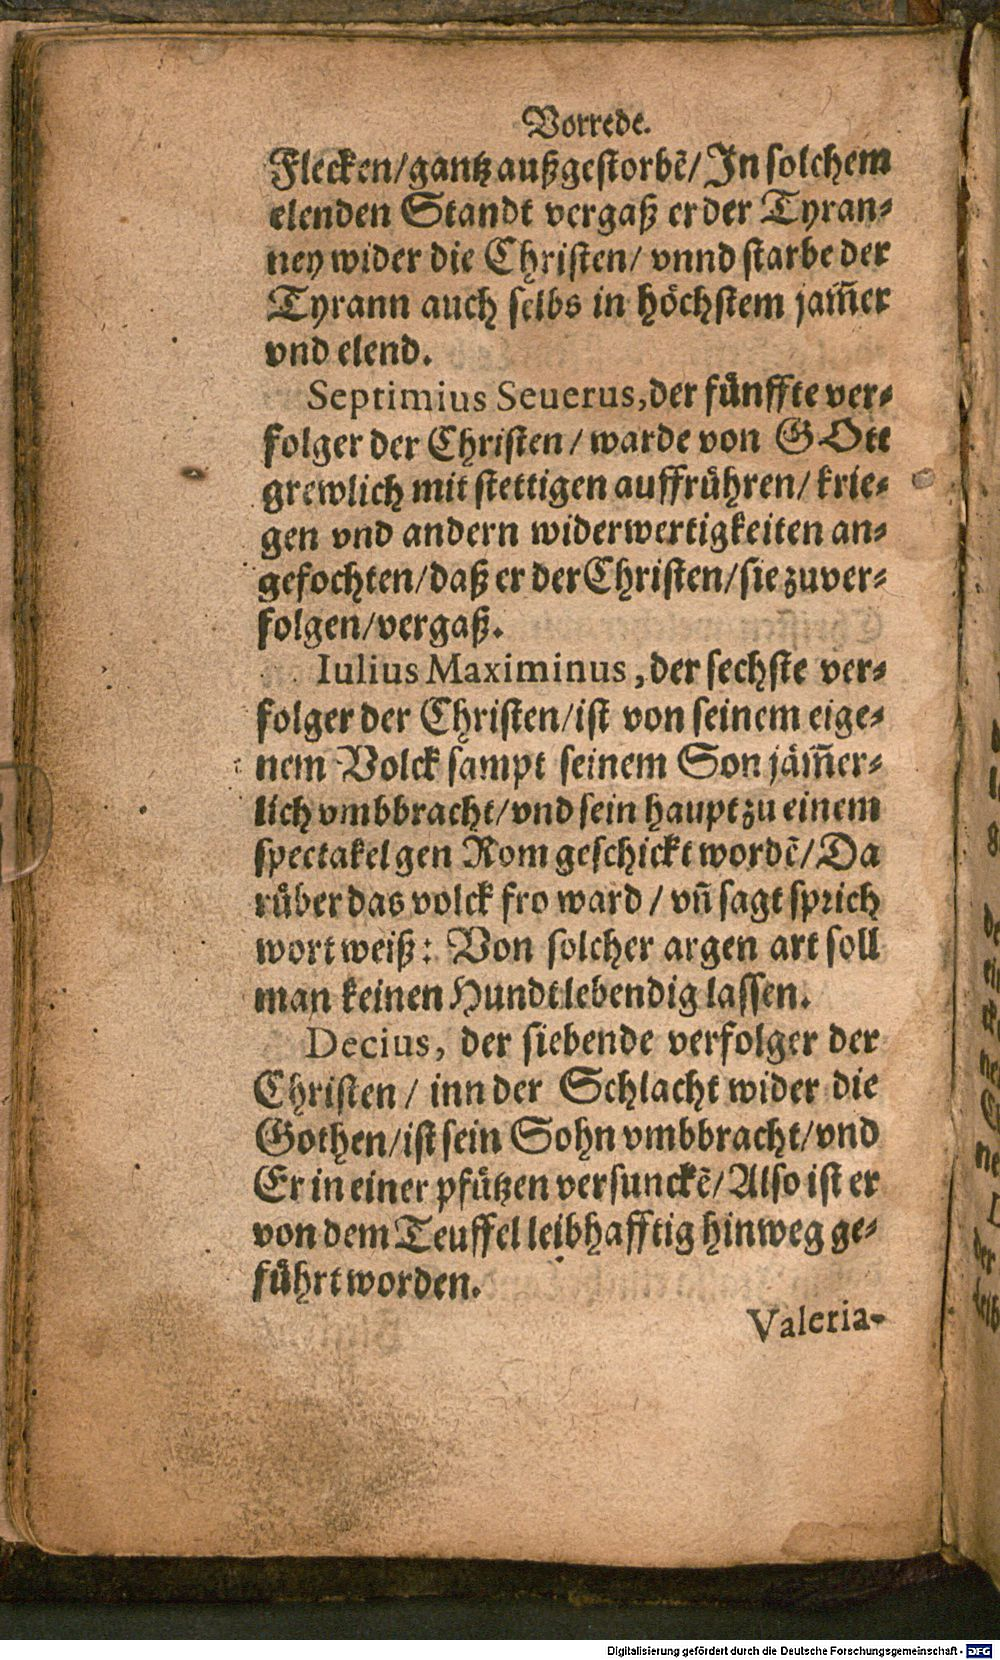 Vorrede.
Flecken/gantz außgestorbē/In solchem
elenden Standt vergaß er der Tyran-
ney wider die Christen/ vnnd starbe der
Tyrann auch selbs in höchstem jam̃er
vnd elend.
Septimius Seuerus, der fünffte ver-
folger der Christen/ warde von GOtt
grewlich mit stettigen auffrühren/ krie-
gen vnd andern widerwertigkeiten an-
gefochten/daß er der Christen/sie zuver-
folgen/vergaß.
Iulius Maximinus, der sechste ver-
folger der Christen/ist von seinem eige-
nem Volck sampt seinem Son jäm̃er-
lich vmbbracht/vnd sein haupt zu einem
spectakel gen Rom geschickt wordē/Da
rüber das volck fro ward / vñ sagt sprich
wort weiß: Von solcher argen art soll
man keinen Hundt lebendig lassen.
Decius, der siebende verfolger der
Christen/ inn der Schlacht wider die
Gothen/ist sein Sohn vmbbracht/vnd
Er in einer pfützen versunckē/Also ist er
von dem Teuffel leibhafftig hinweg ge-
führt worden.
Valeria-
Digitalisierung gefördert durch die Deutsche Forschungsgemeinschaft - DFG